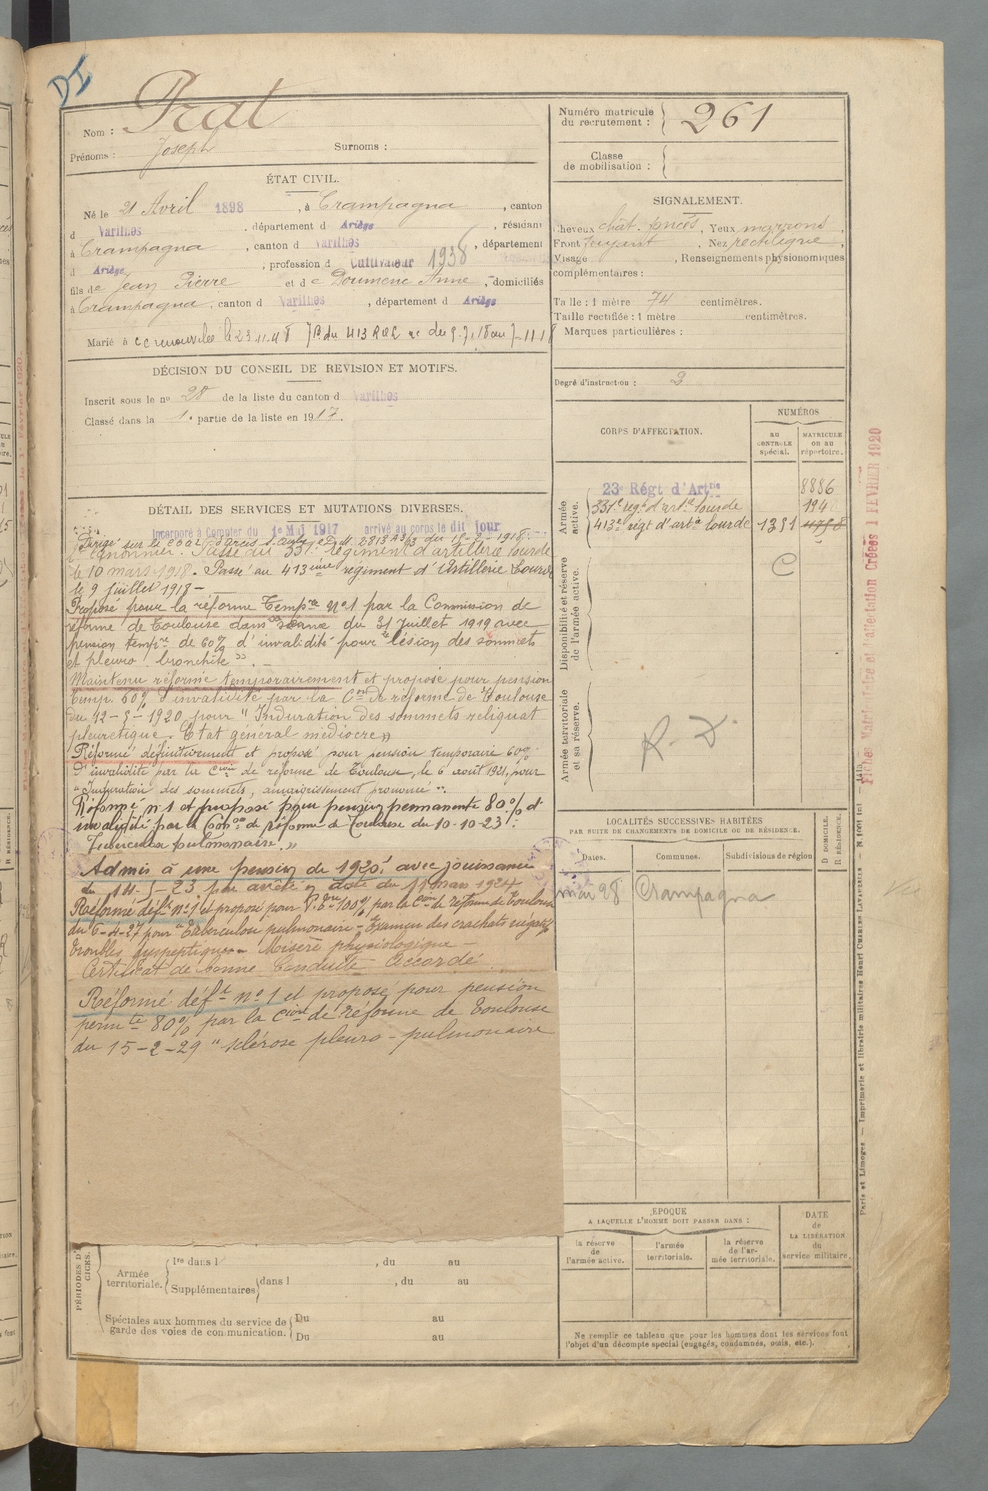 DI
Nom : Prat
Prénoms : Joseph Surnoms :
ÉTAT CIVIL.
Né le 21 Avril 1898, à Crampagna, canton
d Varilhes, département d Ariège, résidant
à Crampagna, canton d Varilhes, département
d Ariège, profession d Cultivateur 1938
fils de Jean Pierre et de Doumenc Anne, domiciliés
à Crampagna, canton d Varilhes, département d Ariège
Marié à
DÉCISION DU CONSEIL DE REVISION ET MOTIFS.
Inscrit sous le no 28 de la liste du canton d Varilhes
Classé dans la 1e partie de la liste en 1917.
DÉTAIL DES SERVICES ET MUTATIONS DIVERSES.
Incorporé à Compter du 1e Mai 1917 arrivé au corps le dit jour
canonnier. Passé au 331e Régiment d'artillerie lourde
le 10 mars 1918. Passé au 413ème régiment d'Artillerie Lourde
le 9 juillet 1918 —
Proposé pour la réforme Tempre No 1 par la Commission de
réforme de Toulouse dans sa séance du 31 Juillet 1919 avec
pension tempre de 60% d'invalidité pour "lésion des sommets
et pleuro bronchite". —
Maintenu réformé temporairement et proposé pour pension
temp. 60% d'invalidité par la Con de réforme de Toulouse
du 12-5-1920 pour "Induration des sommets reliquat
pleurétique. Etat général médiocre"
Réformé définitivement et proposé pour pension temporaire 60%
d'invalidité par la Cion de réforme de Toulouse, le 6 août 1921, pour
"Induration des sommets, amaigrissement prononcé".
Réformé no 1 et proposé pour pension permanente 80% d'
invalidité par la Com on de réforme de Toulouse du 10-10-23 :
Tuberculose pulmonaire."
Admis à une pension de 1920f avec jouissance
du 14-5-23 par arrêté en date du 11 mars 1924
Réformé déft no 1 et proposé pour 100% par la Cion de réforme de Toulouse
du 6-4-27 pour "Tuberculose pulmonaire - Examen des crachats négatif
troubles dyspeptiques - Misère physiologique —
Certificat de bonne Conduite Accordé
Réformé déft no 1 et proposé pour pension
permte 80% par la Cion de réforme de Toulouse
du 15-2-29 "sclérose pleuro-pulmonaire
Armée territoriale.
1re dans l , du au
Supplémentaires dans l , du au
Spéciales aux hommes du service de garde des voies de communication.
Du au
Du au
Numéro matricule du recrutement : 261
Classe de mobilisation :
SIGNALEMENT.
Cheveux chât. foncés, Yeux marrons
Front fuyant, Nez rectiligne,
Visage , Renseignements physionomiques
complémentaires :
Taille : 1 mètre 74 centimètres.
Taille rectifiée : 1 mètre centimètres.
Marques particulières :
Degré d'instruction : 3
CORPS D'AFFECTATION.
NUMÉROS
au contrôle spécial.
matricule ou au répertoire.
Armée active.
23e Régt d'Artrie 8886
331e régt d'artie lourde 194
413e régt d'artie lourde 1381
Disponibilité et réserve de l'armée active.
C
Armée territoriale et sa réserve.
R. D.
LOCALITÉS SUCCESSIVES HABITÉES
PAR SUITE DE CHANGEMENTS DE DOMICILE OU DE RÉSIDENCE.
Dates. Communes. Subdivisions de région D. DOMICILE. R. RÉSIDENCE.
mai 28 Crampagna
ÉPOQUE
A LAQUELLE L'HOMME DOIT PASSER DANS :
la réserve de l'armée active.
l'armée territoriale.
la réserve de l'armée territoriale.
DATE de LA LIBÉRATION du service militaire.
Ne remplir ce tableau que pour les hommes dont les services font
l'objet d'un décompte spécial (engagés, condamnés, omis, etc.).
Fiches Matriculaire et d'affectation Créées 1 FEVRIER 1920
Paris et Limoges. — Imprimerie et librairie militaires Henri CHARLES-LAVAUZELLE